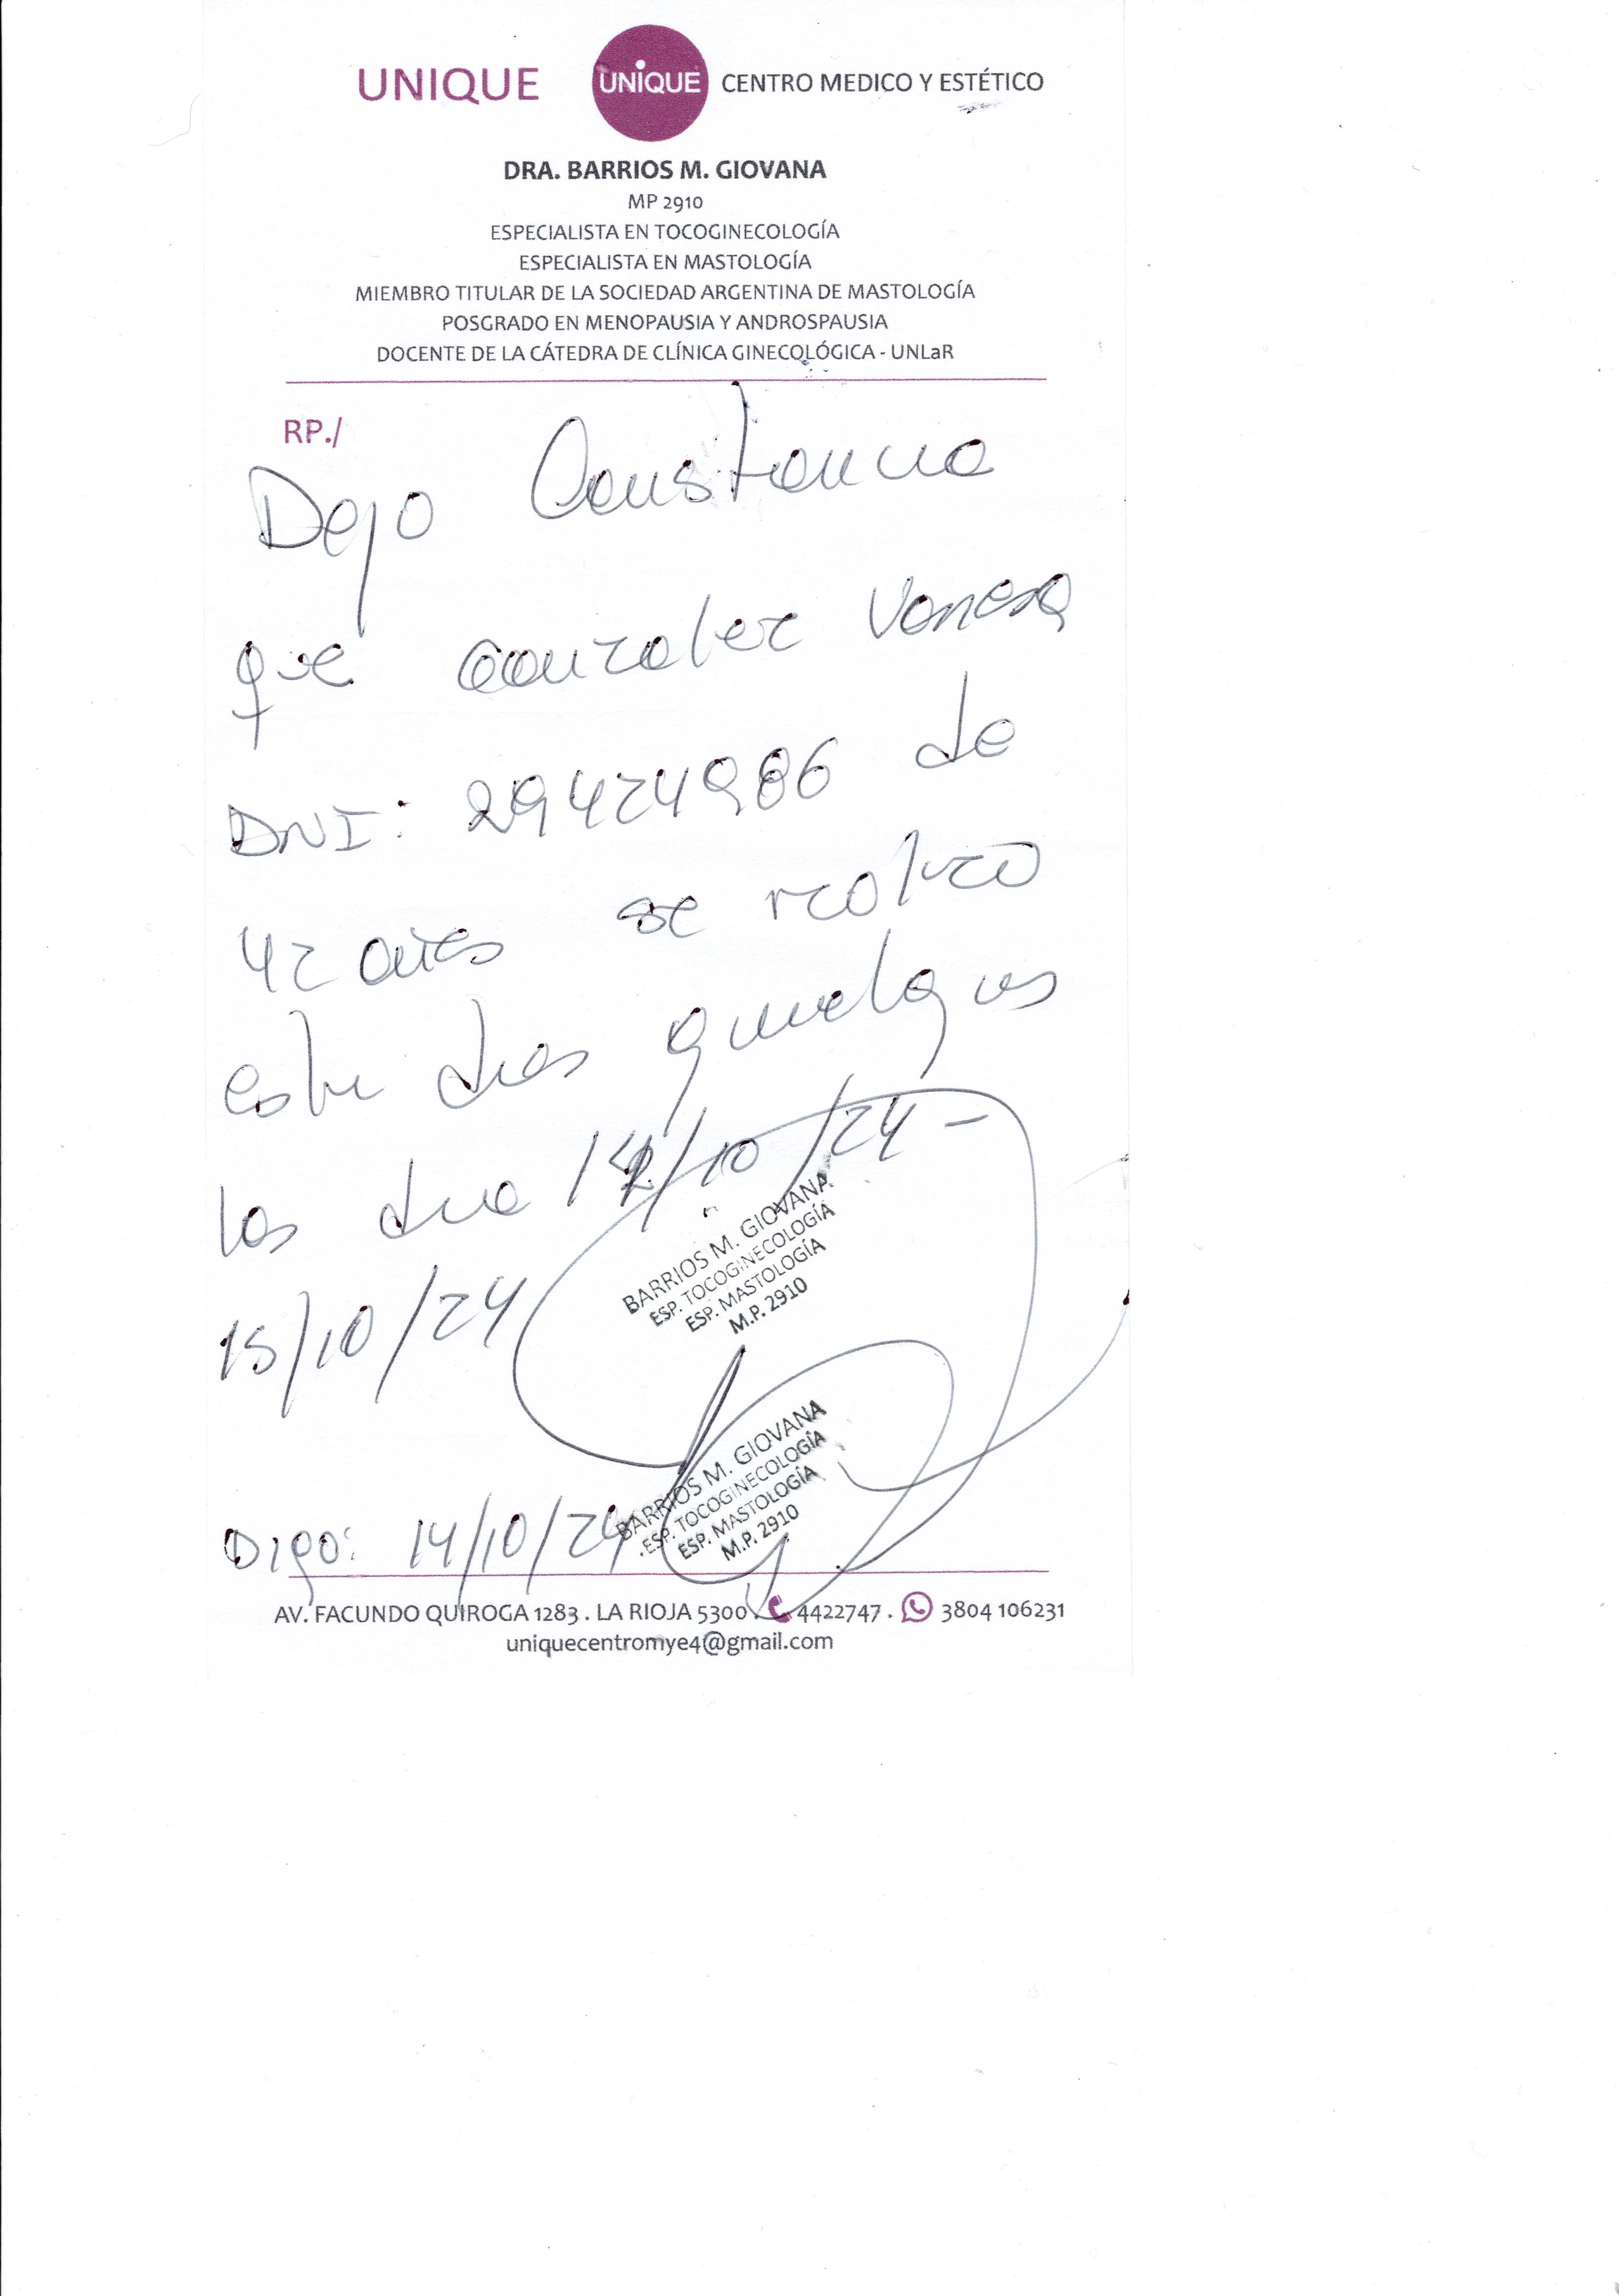 UNIQUE UNIQUE CENTRO MEDICO Y ESTÉTICO
DRA. BARRIOS M. GIOVANA
MP 2910
ESPECIALISTA EN TOCOGINECOLOGÍA
ESPECIALISTA EN MASTOLOGÍA
MIEMBRO TITULAR DE LA SOCIEDAD ARGENTINA DE MASTOLOGÍA
POSGRADO EN MENOPAUSIA Y ANDROSPAUSIA
DOCENTE DE LA CÁTEDRA DE CLÍNICA GINECOLÓGICA - UNLaR
RP./
Dejo Constancia
que Gonzalez Vanesa
DNI: 29424986 de
42 años se realizo
estudios ginecologicos
los dia /10/24 -
15/10/24
BARRIOS M. GIOVANA
ESP. TOCOGINECOLOGÍA
ESP. MASTOLOGÍA
M.P. 2910
Digo: 14/10/24
BARRIOS M. GIOVANA
ESP. TOCOGINECOLOGÍA
ESP. MASTOLOGÍA
M.P. 2910
AV. FACUNDO QUIROGA 1283 . LA RIOJA 5300 . 4422747 . 3804 106231
uniquecentromye4@gmail.com